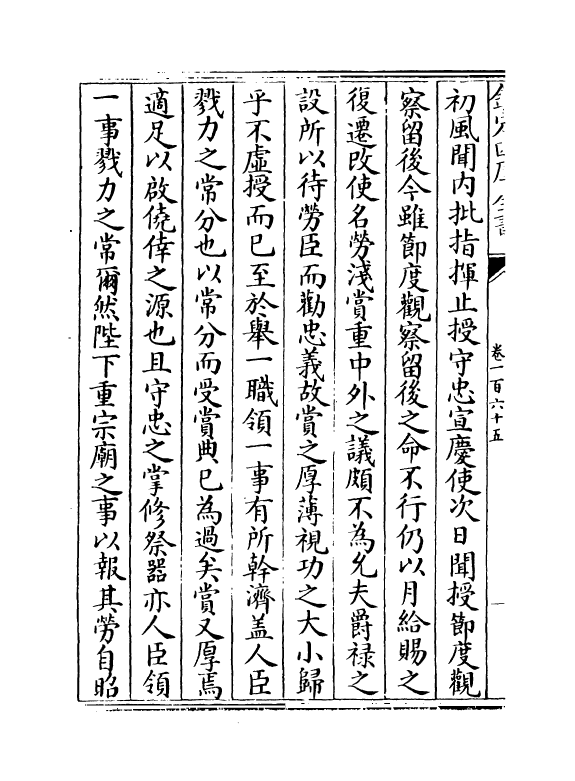 欽定四庫全書
卷一百六十五
初風聞内批指揮止授守忠宣慶使次日聞授節度觀
察留後今雖節度觀察留後之命不行仍以月給賜之
復遷改使名勞淺賞重中外之議頗不為允夫爵禄之
設所以待勞臣而勸忠義故賞之厚薄視功之大小歸
乎不虛授而已至於舉一職領一事有所幹濟盖人臣
戮力之常分也以常分而受賞典已為過矣賞又厚焉
適足以啟僥倖之源也且守忠之掌修祭器亦人臣領
一事戮力之常爾然陛下重宗廟之事以報其勞自昭